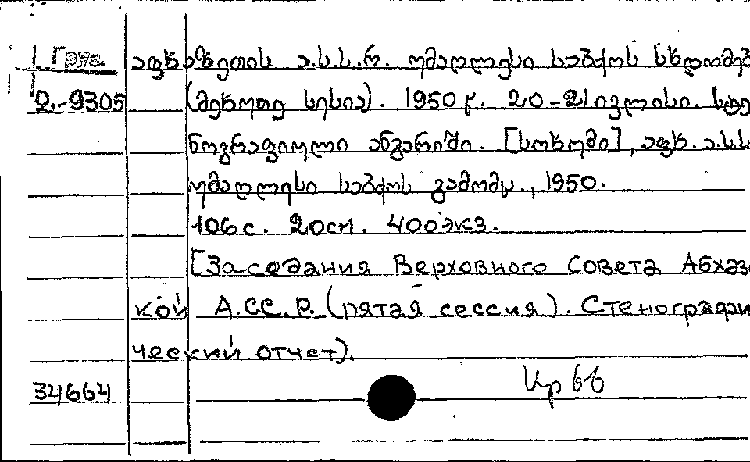 Груз. აფხაზეთის ა.ს.ს.რ. უმაღლესი საბჭოს სხდომებ
2.-9305 (მეხუთე სესია). 1950 წ. 20-21 ივლისი. სტე
ნოგრაფიული ანგარიში. [სოხუმი], აფხ. ა.ს.ს
უმაღლესი საბჭოს გამომც., 1950.
106 с. 20 см. 400 экз.
[Заседания Верховного Совета Абхаз
кой А.СС.Р. (пятая сессия). Стенографи
ческий отчет).
34664